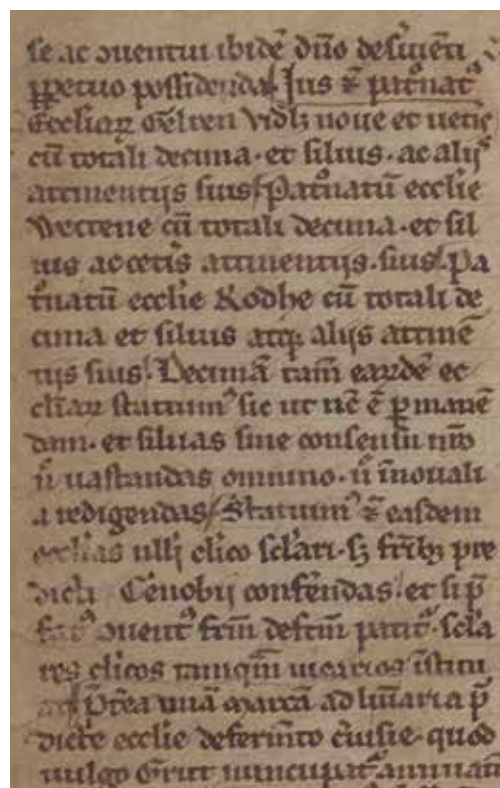 se ac ꝯuentui ibidē dn̄o deſuiēti
ꝑpetuo poſſidenda Ius ⁊ pat͛nat᷒
Eccliaꝝ Gēlten vidlꝫ noue et uetis
cū totali decima · et siluis · ac alijs
attinentijs suis Pat͛natū ecclie
Wectene cū totali decima · et sil
uis ac cetis attinentijs · suis Pa
t͛natū ecclie Rodhe cū totali de
cima et siluis atqꝫ alijs attinē
tijs suis Decimā tam̄ eardē ec
cliaꝝ statuim᷒ sic ut nc̄ ē ꝑmanē
dam · et siluas sine consensu nr̄o
n̄ uastandas omnino · n̄ īnouali
a redigendas Statuim᷒ ⁊ easdem
ecclias ulli clico sclari · sꝫ frībꝫ pre
dicti Cēnobij conferendas et si p̄
fat᷒ ꝯuent᷒ frm̄ defc̄m patit᷒ · scla
res clicos tamqm̄ uicarios īstitu
at p̄tea unā marcā ad luīaria p̄
dicte ecclie deferim̄to cīusie · quod
uulgo Grut nuncupat᷒ annuati